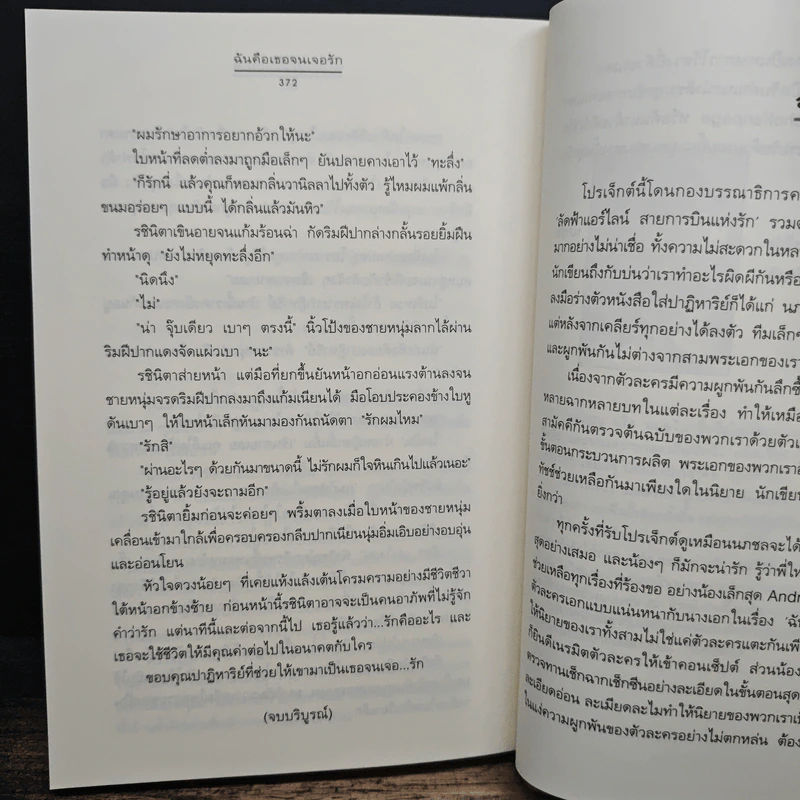 ฉันคือเธอจนเจอรัก
372
"ผมรักษาอาการอยากอ้วกให้นะ"
ใบหน้าที่ลดต่ำลงมาถูกมือเล็กๆ ยันปลายคางเอาไว้ "ทะลึ่ง"
"ก็รักนี่ แล้วคุณก็หอมกลิ่นวานิลลาไปทั้งตัว รู้ไหมผมแพ้กลิ่น
ขนมอร่อยๆ แบบนี้ ได้กลิ่นแล้วมันหิว"
รชินิตาเขินอายจนแก้มร้อนฉ่า กัดริมฝีปากล่างกลั้นรอยยิ้มฝืน
ทำหน้าดุ "ยังไม่หยุดทะลึ่งอีก"
"นิดนึง"
"ไม่"
"น่า จุ๊บเดียว เบาๆ ตรงนี้" นิ้วโป้งของชายหนุ่มลากไล้ผ่าน
ริมฝีปากแดงจัดแผ่วเบา "นะ"
รชินิตาส่ายหน้า แต่มือที่ยกขึ้นยันหน้าอกอ่อนแรงต้านลงจน
ชายหนุ่มจรดริมฝีปากลงมาถึงแก้มเนียนได้ มือโอบประคองข้างใบหู
ดันเบาๆ ให้ใบหน้าเล็กหันมามองกันถนัดตา "รักผมไหม"
"รักสิ"
"ผ่านอะไรๆ ด้วยกันมาขนาดนี้ ไม่รักผมก็ใจหินเกินไปแล้วเนอะ"
"รู้อยู่แล้วยังจะถามอีก"
รชินิตายิ้มก่อนจะค่อยๆ พริ้มตาลงเมื่อใบหน้าของชายหนุ่ม
เคลื่อนเข้ามาใกล้เพื่อครอบครองกลีบปากเนียนนุ่มอิ่มเอิบอย่างอบอุ่น
และอ่อนโยน
หัวใจดวงน้อยๆ ที่เคยแห้งแล้งเต้นโครมครามอย่างมีชีวิตชีวา
ใต้หน้าอกข้างซ้าย ก่อนหน้านี้รชินิตาอาจจะเป็นคนอาภัพที่ไม่รู้จัก
คำว่ารัก แต่นาทีนี้และต่อจากนี้ไป เธอรู้แล้วว่า...รักคืออะไร และ
เธอจะใช้ชีวิตให้มีคุณค่าต่อไปในอนาคตกับใคร
ขอบคุณปาฏิหาริย์ที่ช่วยให้เขามาเป็นเธอจนเจอ...รัก
(จบบริบูรณ์)
โปรเจ็กต์นี้โดนกองบรรณาธิการค
'ลัดฟ้าแอร์ไลน์ สายการบินแห่งรัก' รวมต
มากอย่างไม่น่าเชื่อ ทั้งความไม่สะดวกในหล
นักเขียนถึงกับบ่นว่าเราทำอะไรผิดผีกันหรือ
ลงมือร่างตัวหนังสือใส่ปาฏิหาริย์ก็ได้แก่ นภ
แต่หลังจากเคลียร์ทุกอย่างได้ลงตัว ทีมเล็กๆ
และผูกพันกันไม่ต่างจากสามพระเอกของเรา
เนื่องจากตัวละครมีความผูกพันกันลึกซึ้
หลายฉากหลายบทในแต่ละเรื่อง ทำให้เหมือ
สามัคคีกันตรวจต้นฉบับของพวกเราด้วยตัวเ
ขั้นตอนกระบวนการผลิต พระเอกของพวกเรา
ทัชช์ช่วยเหลือกันมาเพียงใดในนิยาย นักเขีย
ยิ่งกว่า
ทุกครั้งที่รับโปรเจ็กต์ดูเหมือนนภชลจะได้
สุดอย่างเสมอ และน้องๆ ก็มักจะน่ารัก รู้ว่าพี่ให
ช่วยเหลือทุกเรื่องที่ร้องขอ อย่างน้องเล็กสุด Andr
ตัวละครเอกแบบแน่นหนากับนางเอกในเรื่อง 'ฉัน
ให้นิยายของเราทั้งสามไม่ใช่แค่ตัวละครแตะกันเพี
ก็ยินดีเนรมิตตัวละครให้เข้าคอนเซ็ปต์ ส่วนน้อง
ตรวจทานเช็กฉากเช็กซีนอย่างละเอียดในขั้นตอนสุด
ละเอียดอ่อน ละเมียดละไมทำให้นิยายของพวกเราเป
ในแง่ความผูกพันของตัวละครอย่างไม่ตกหล่น ต้อง